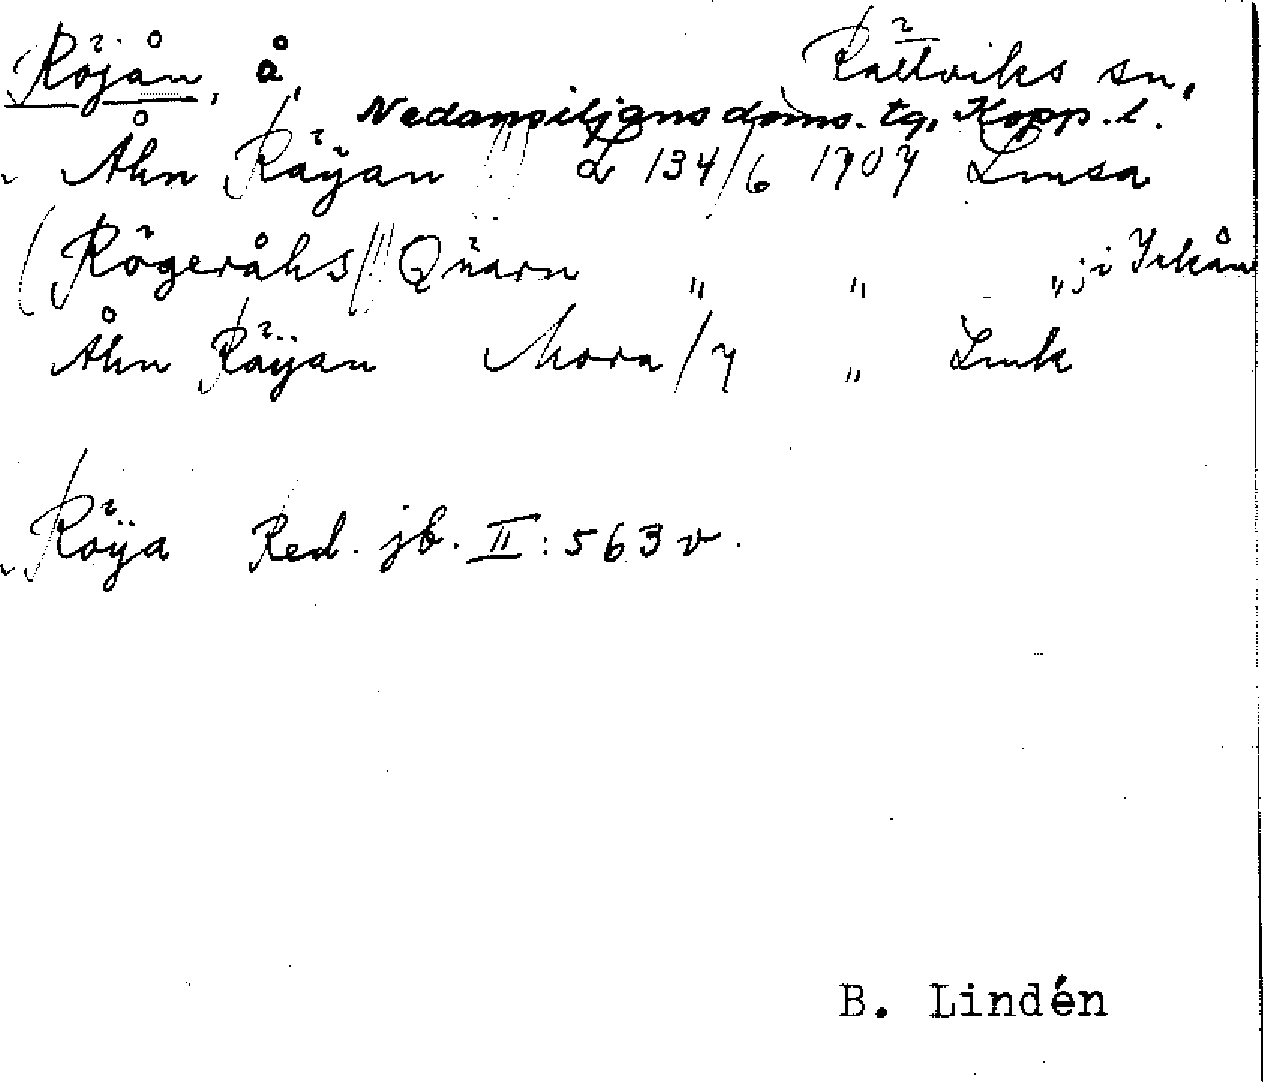 Röjån, å, Rättviks sn,
Nedansiljans doms. tg, Kopp. l.
Åhn Räÿan L 134/6 1707 Lmsa
(Rögeråhs// Qüarn " " "; i Irkån
Åhn Räÿan Mora/7 " Lmk
Röÿa Red. jb. II: 563 v.
B. Lindén